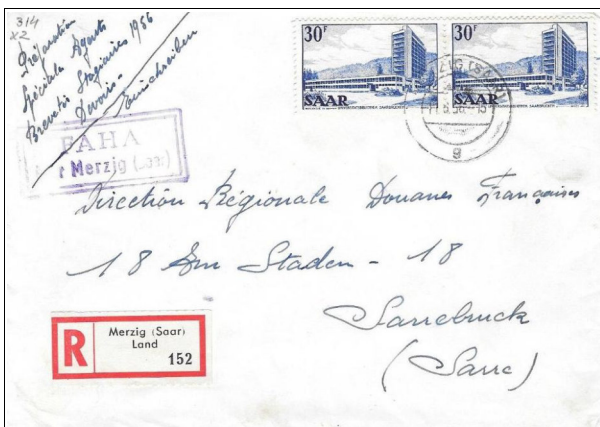 314
x2
Préparation
Spéciale Agents
Brevetés Stagiaires 1956
Devoirs -
Einschreiben
30F
SAAR
30F
SAAR
MERZIG (SAAR)
g
FAHA
Merzig (Saar)
Direction Régionale Douanes Françaises
18 Am Staden - 18
Sarrebruck
(Sarre)
R
Merzig (Saar)
Land
152